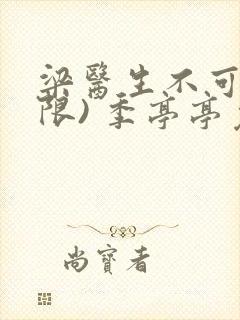 梁醫生不可
限)季亭亭
尚寶看